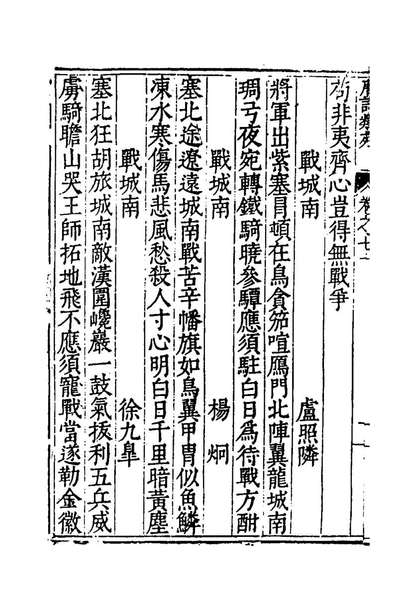 唐詩類苑 卷之七
苟非夷齊心豈得無戰爭
戰城南 盧照隣
將軍出紫塞冒頓在烏貪笳喧鴈門北陣翼龍城南
琱弓夜宛轉鐵騎曉參驔應須駐白日為待戰方酣
戰城南 楊炯
塞北途遼遠城南戰苦辛幡旗如鳥翼甲冑似魚鱗
凍水寒傷馬悲風愁殺人寸心明白日千里暗黃塵
戰城南 徐九皐
塞北狂胡旅城南敵漢圍巉巖一鼓氣拔利五兵威
虜騎瞻山哭王師拓地飛不應須寵戰當遂勒金徽